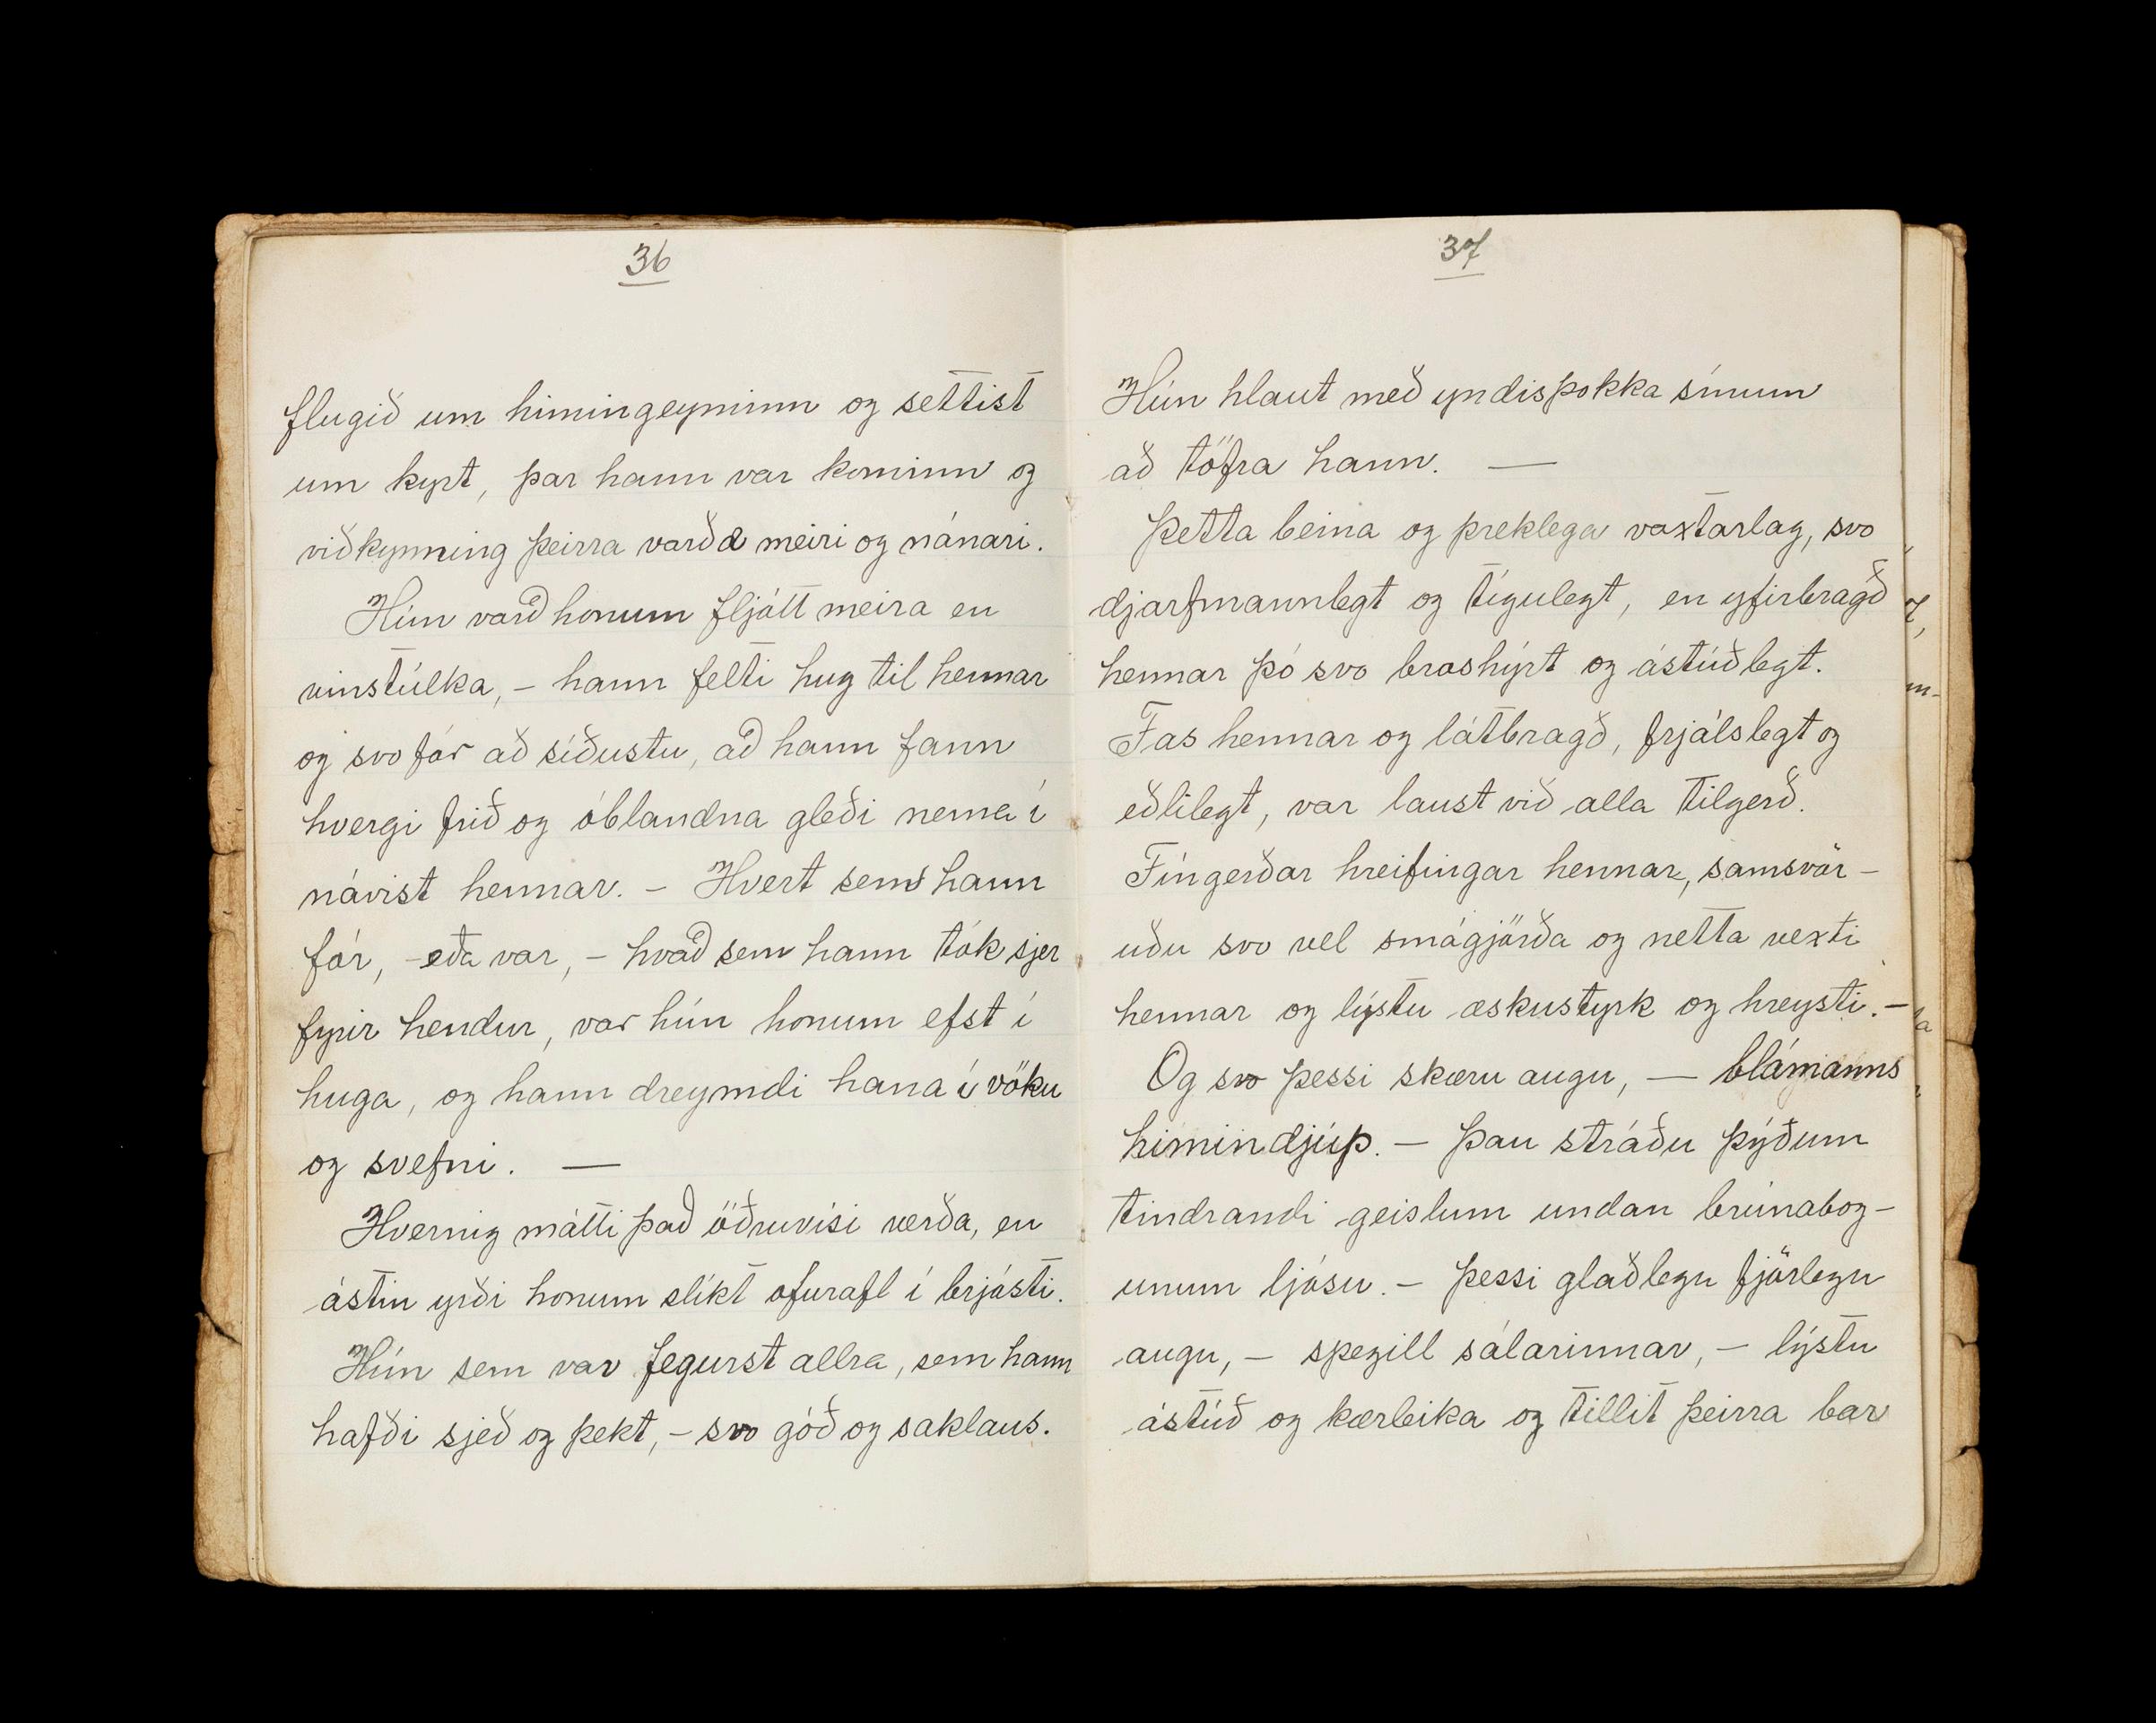 36
flugið um himingeyminn og settist
um kyrt, þar hann var kominn og
viðkynning þeirra varð æ meiri og nánari.
Hún varð honum fljótt meira en
vinstúlka, – hann felti hug til hennar
og svo fór að síðustu, að hann fann
hvergi frið og óblandna gleði nema í
návist hennar. – Hvert sem hann
fór, – eða var, – hvað sem hann tók sjer
fyrir hendur, var hún honum efst í
huga, og hann dreymdi hana í vöku
og svefni. —
Hvernig mátti það öðruvísi verða, en
ástin yrði honum slíkt ofurafl í brjósti.
Hún sem var fegurst allra, sem hann
hafði sjeð og þekt, – svo góð og saklaus.
37
Hún hlaut með yndisþokka sínum
að töfra hann. —
Þetta beina og þreklega vaxtarlag, svo
djarfmannlegt og tígulegt, en yfirbragð
hennar þó svo broshýrt og ástúðlegt.
Fas hennar og látbragð, frjálslegt og
eðlilegt, var laust við alla tilgerð.
Fíngerðar hreifingar hennar, samsvör-
uðu svo vel smágjörða og netta vexti
hennar og lýstu æskustyrk og hreysti. –
Og svo þessi skæru augu, —
himindjúp. – Þau stráðu þýðum
tindrandi geislum undan brúnabog-
unum ljósu. – Þessi glaðlegu fjörlegu
augu, – spegill sálarinnar, – lýstu
ástúð og kærleika og tillit þeirra bar